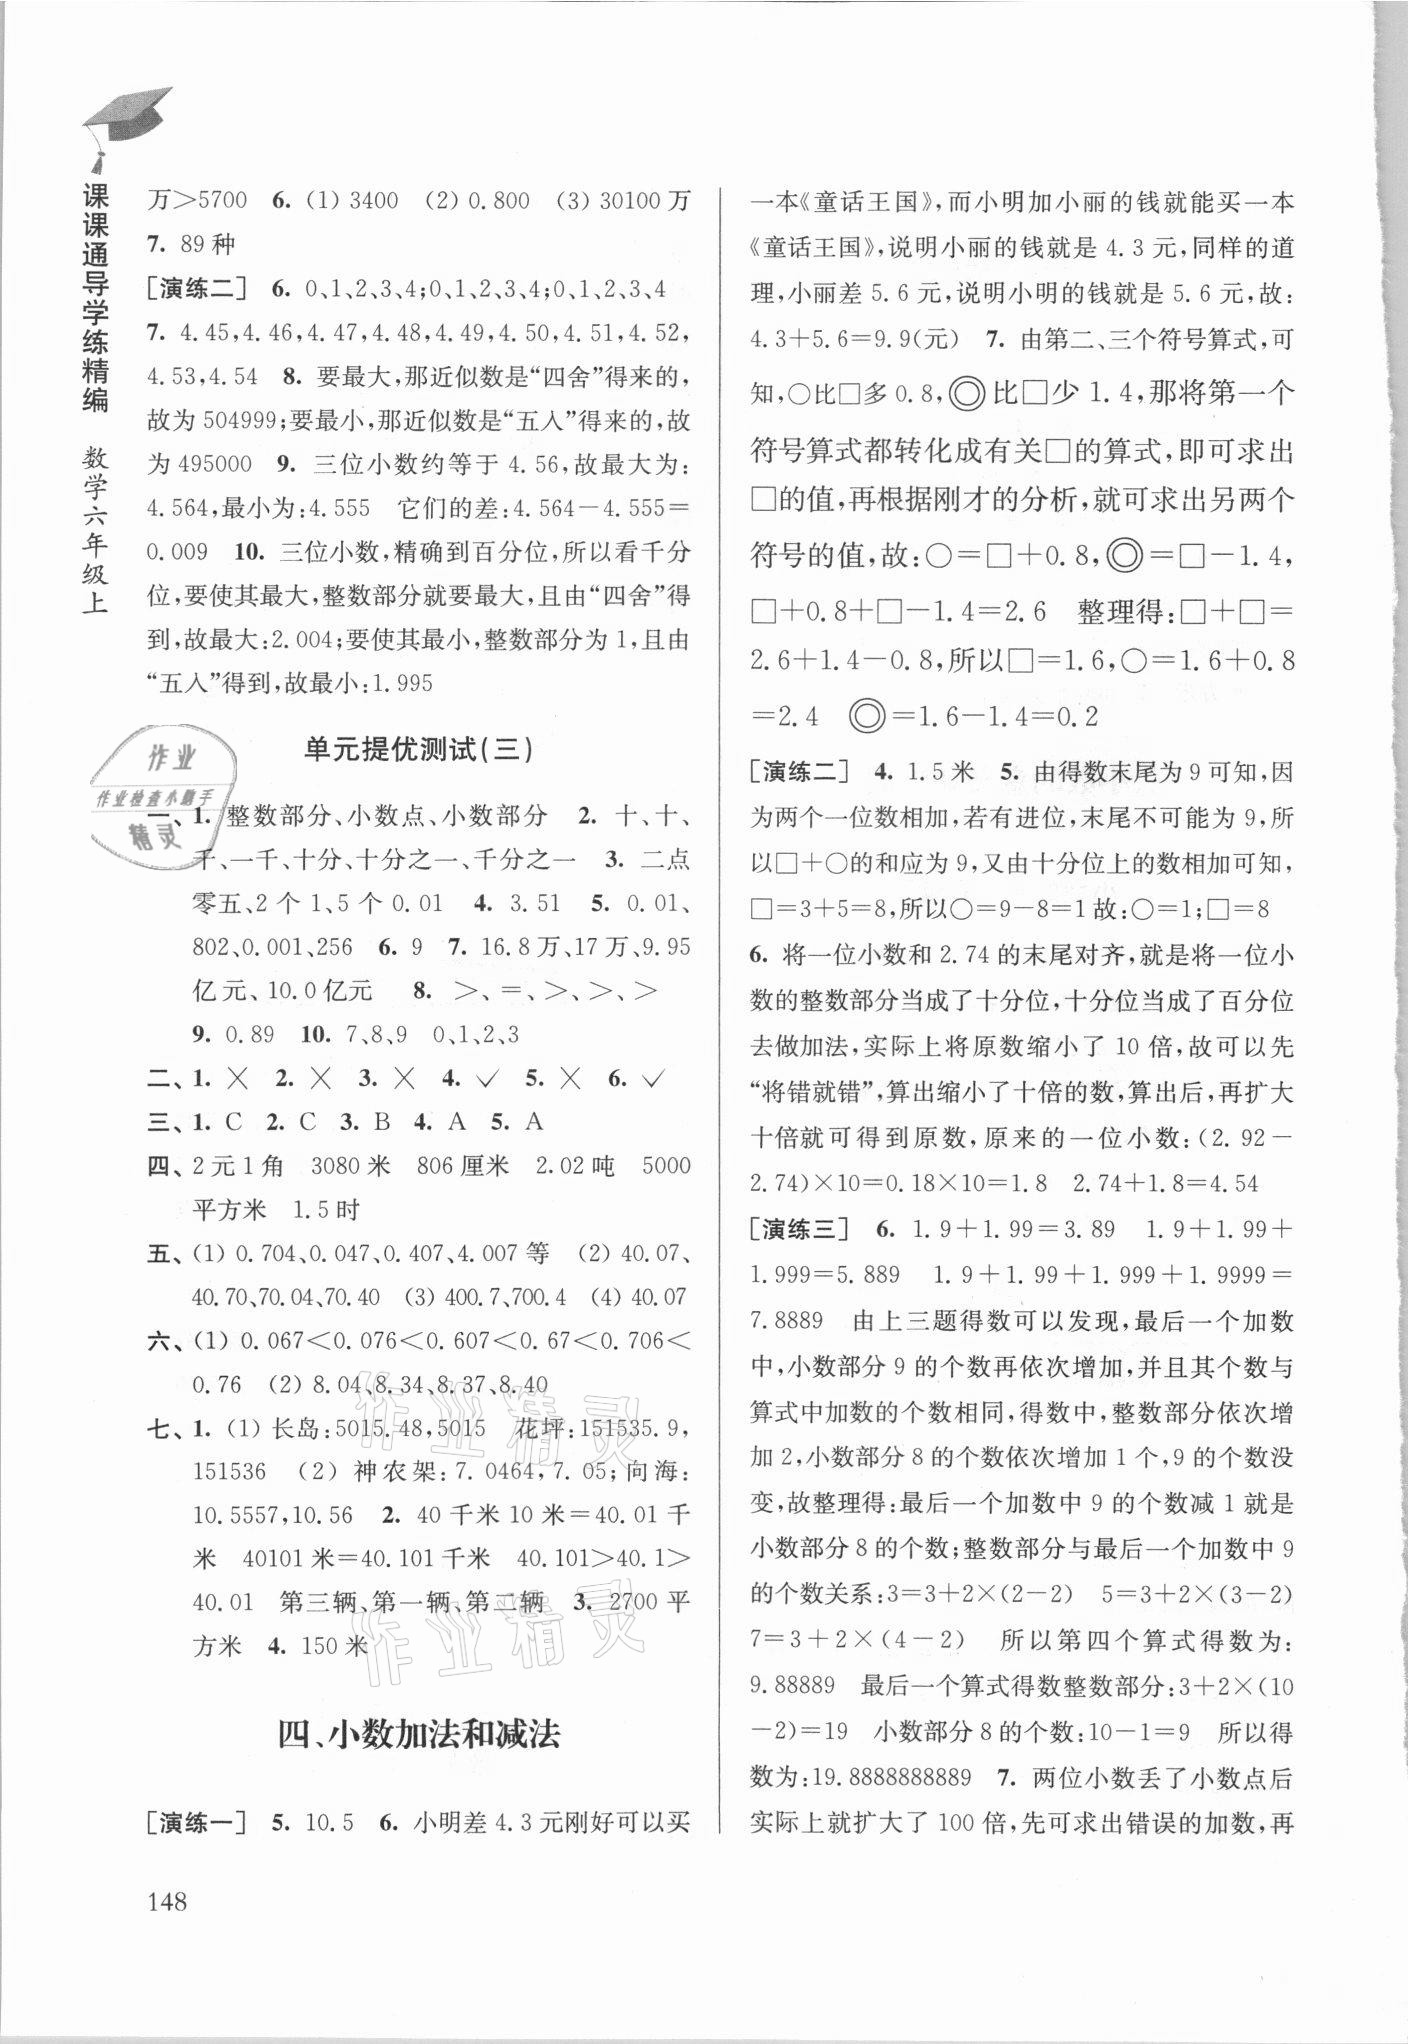 课课通导学练精编 数学六年级上
万＞5700 6. (1) 3400 (2) 0.800 (3) 30100万
7. 89种
[演练二] 6. 0、1、2、3、4;0、1、2、3、4;0、1、2、3、4
7. 4.45,4.46,4.47,4.48,4.49,4.50,4.51,4.52,
4.53,4.54 8. 要最大,那近似数是“四舍”得来的,
故为504999;要最小,那近似数是“五入”得来的,故
为495000 9. 三位小数约等于4.56,故最大为:
4.564,最小为:4.555 它们的差:4.564－4.555＝
0.009 10. 三位小数,精确到百分位,所以看千分
位,要使其最大,整数部分就要最大,且由“四舍”得
到,故最大:2.004;要使其最小,整数部分为1,且由
“五入”得到,故最小:1.995
单元提优测试(三)
一、1. 整数部分、小数点、小数部分 2. 十、十、
千、一千、十分、十分之一、千分之一 3. 二点
零五、2个1、5个0.01 4. 3.51 5. 0.01、
802、0.001、256 6. 9 7. 16.8万、17万、9.95
亿元、10.0亿元 8. ＞、＝、＞、＞、＞
9. 0.89 10. 7、8、9 0、1、2、3
二、1. × 2. × 3. × 4. √ 5. × 6. √
三、1. C 2. C 3. B 4. A 5. A
四、2元1角 3080米 806厘米 2.02吨 5000
平方米 1.5时
五、(1) 0.704、0.047、0.407、4.007等 (2) 40.07、
40.70、70.04、70.40 (3) 400.7、700.4 (4) 40.07
六、(1) 0.067＜0.076＜0.607＜0.67＜0.706＜
0.76 (2) 8.04、8.34、8.37、8.40
七、1. (1) 长岛:5015.48,5015 花坪:151535.9,
151536 (2) 神农架:7.0464,7.05;向海:
10.5557,10.56 2. 40千米10米＝40.01千
米 40101米＝40.101千米 40.101＞40.1＞
40.01 第三辆、第一辆、第二辆 3. 2700平
方米 4. 150米
四、小数加法和减法
[演练一] 5. 10.5 6. 小明差4.3元刚好可以买
一本《童话王国》,而小明加小丽的钱就能买一本
《童话王国》,说明小丽的钱就是4.3元,同样的道
理,小丽差5.6元,说明小明的钱就是5.6元,故:
4.3＋5.6＝9.9(元) 7. 由第二、三个符号算式,可
知,○比□多0.8,◎比□少1.4,那将第一个
符号算式都转化成有关□的算式,即可求出
□的值,再根据刚才的分析,就可求出另两个
符号的值,故:○＝□＋0.8,◎＝□－1.4,
□＋0.8＋□－1.4＝2.6 整理得:□＋□＝
2.6＋1.4－0.8,所以□＝1.6,○＝1.6＋0.8
＝2.4 ◎＝1.6－1.4＝0.2
[演练二] 4. 1.5米 5. 由得数末尾为9可知,因
为两个一位数相加,若有进位,末尾不可能为9,所
以□＋○的和应为9,又由十分位上的数相加可知,
□＝3＋5＝8,所以○＝9－8＝1故:○＝1;□＝8
6. 将一位小数和2.74的末尾对齐,就是将一位小
数的整数部分当成了十分位,十分位当成了百分位
去做加法,实际上将原数缩小了10倍,故可以先
“将错就错”,算出缩小了十倍的数,算出后,再扩大
十倍就可得到原数,原来的一位小数:(2.92－
2.74)×10＝0.18×10＝1.8 2.74＋1.8＝4.54
[演练三] 6. 1.9＋1.99＝3.89 1.9＋1.99＋
1.999＝5.889 1.9＋1.99＋1.999＋1.9999＝
7.8889 由上三题得数可以发现,最后一个加数
中,小数部分9的个数再依次增加,并且其个数与
算式中加数的个数相同,得数中,整数部分依次增
加2,小数部分8的个数依次增加1个,9的个数没
变,故整理得:最后一个加数中9的个数减1就是
小数部分8的个数;整数部分与最后一个加数中9
的个数关系:3＝3＋2×(2－2) 5＝3＋2×(3－2)
7＝3＋2×(4－2) 所以第四个算式得数为:
9.88889 最后一个算式得数整数部分:3＋2×(10
－2)＝19 小数部分8的个数:10－1＝9 所以得
数为:19.8888888889 7. 两位小数丢了小数点后
实际上就扩大了100倍,先可求出错误的加数,再
148
作业
作业检查小助手
精灵
作业精灵
作业精灵